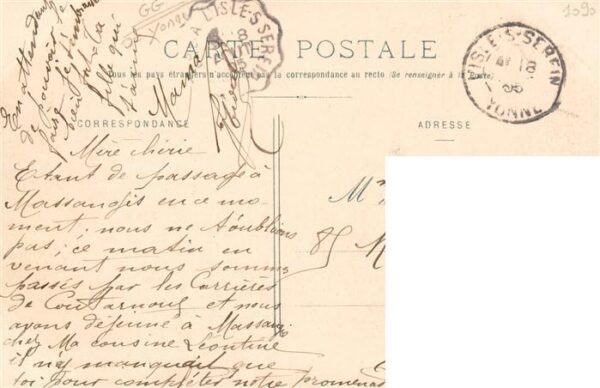 1090
GG
YONNE
A L'ISLE-S-SEREIN
CARTE POSTALE
Tous les pays étrangers n'acceptent pas la correspondance au recto (Se renseigner à la Poste)
CORRESPONDANCE
ADRESSE
L'ISLE-S-SEREIN
18
YONNE
Mère chérie
Etant de passage à
Massangis en ce mo-
ment, nous ne t'oublions
pas; ce matin en
venant nous sommes
passés par les Carrières
de Coutarnoul et nous
avons déjeuné à Massangis
chez Ma cousine Léontine
il n'y manquait que
toi pour compléter notre promenade
En attendant
de pouvoir
ta
fille qui
t'aime
Maria
85